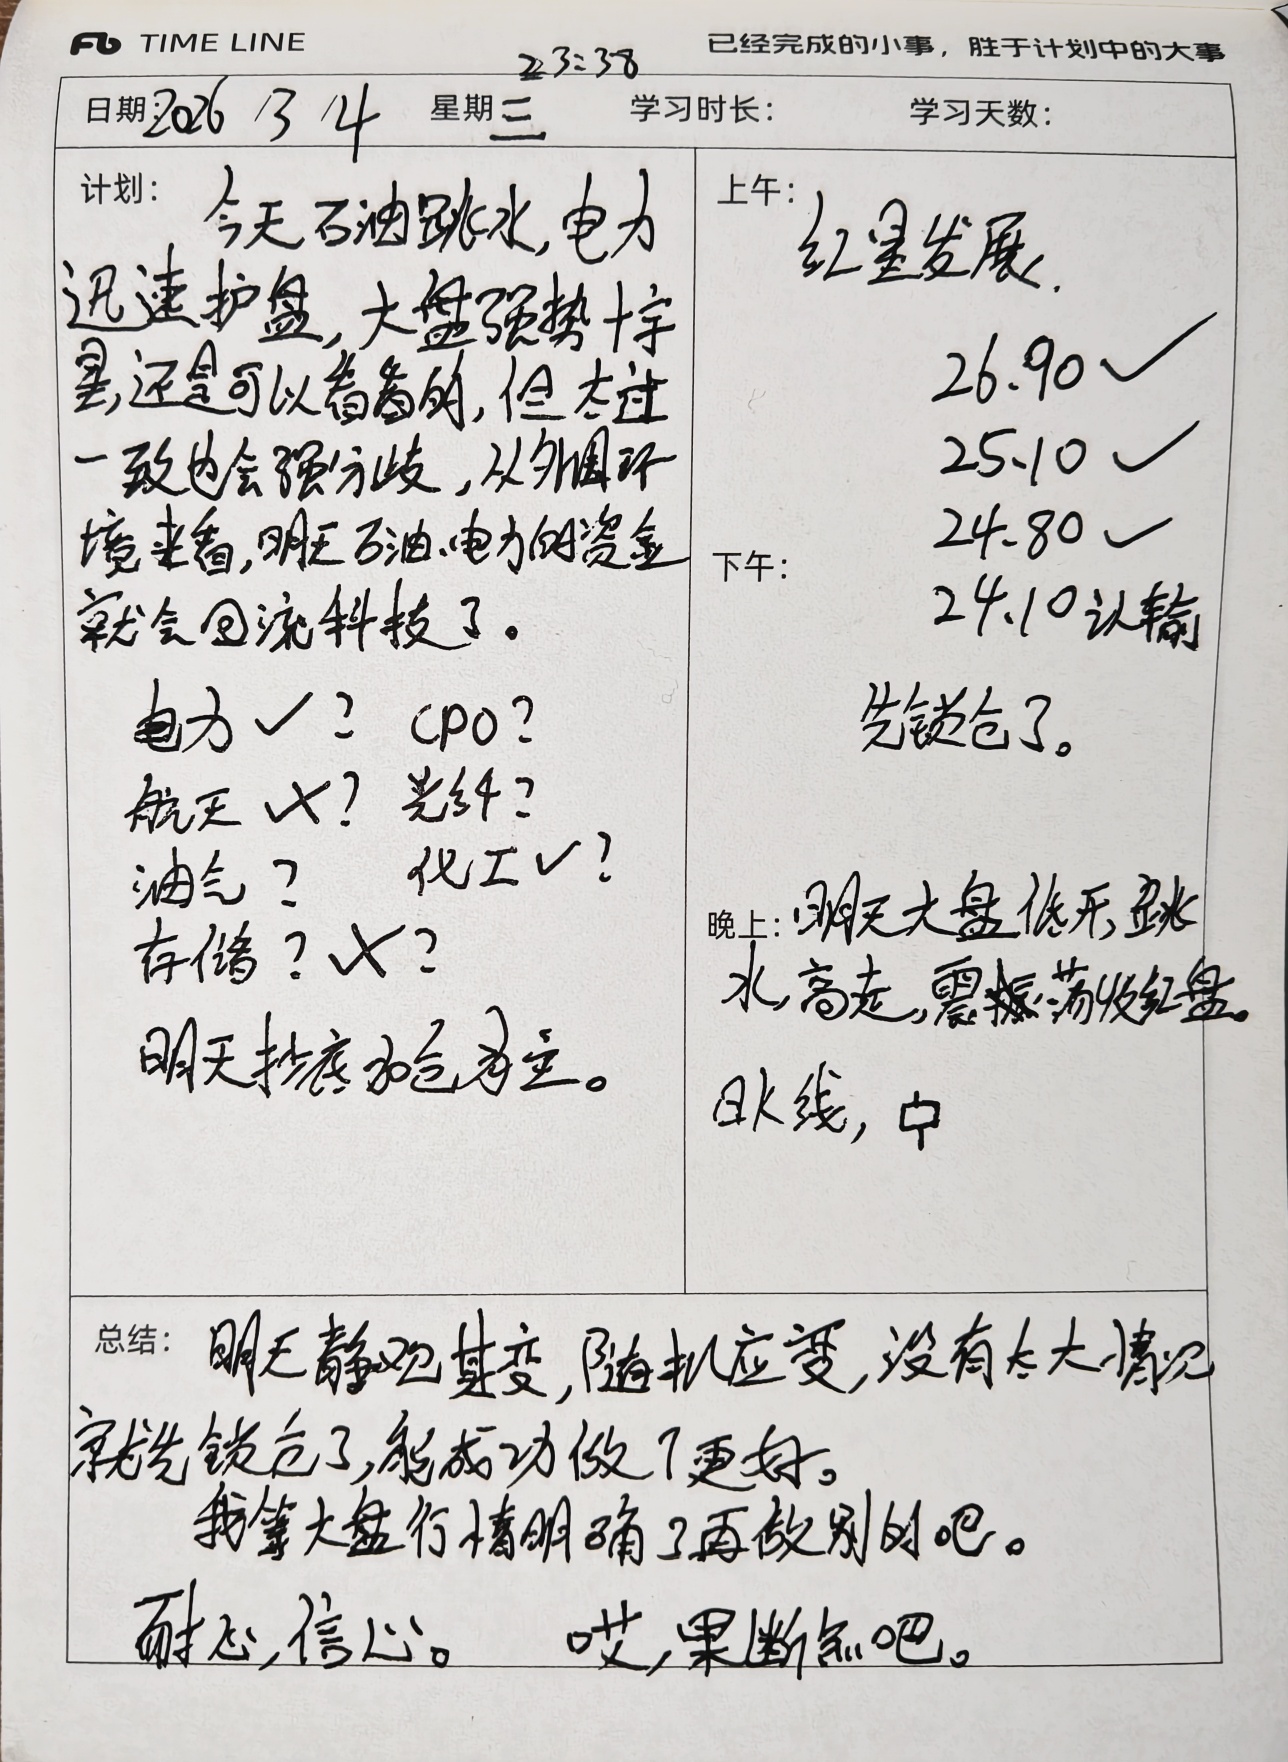 FB TIME LINE
已经完成的小事，胜于计划中的大事
23:38
日期: 2026 /3 /4 星期 三 学习时长: 学习天数:
计划: 今天石油跳水,电力
迅速护盘,大盘强势十字
星,还是可以看看的,但太过
一致也会强分歧,从外围环
境来看,明天石油、电力的资金
就会回流科技了。
电力✓? CPO?
航天 ✗? 光纤?
油气? 化工✓?
存储?✗?
明天抄底加仓为主。
上午:
红星发展.
26.90 ✓
25.10 ✓
24.80 ✓
下午:
24.10认输
先锁仓了。
晚上: 明天大盘低开,跳
水,高走,震振荡收红盘。
日K线,
总结: 明天静观其变,随机应变,没有太大情况
就先锁仓了,能成功做T更好。
我等大盘行情明确了再做别的吧。
耐心,信心。 哎,果断点吧。